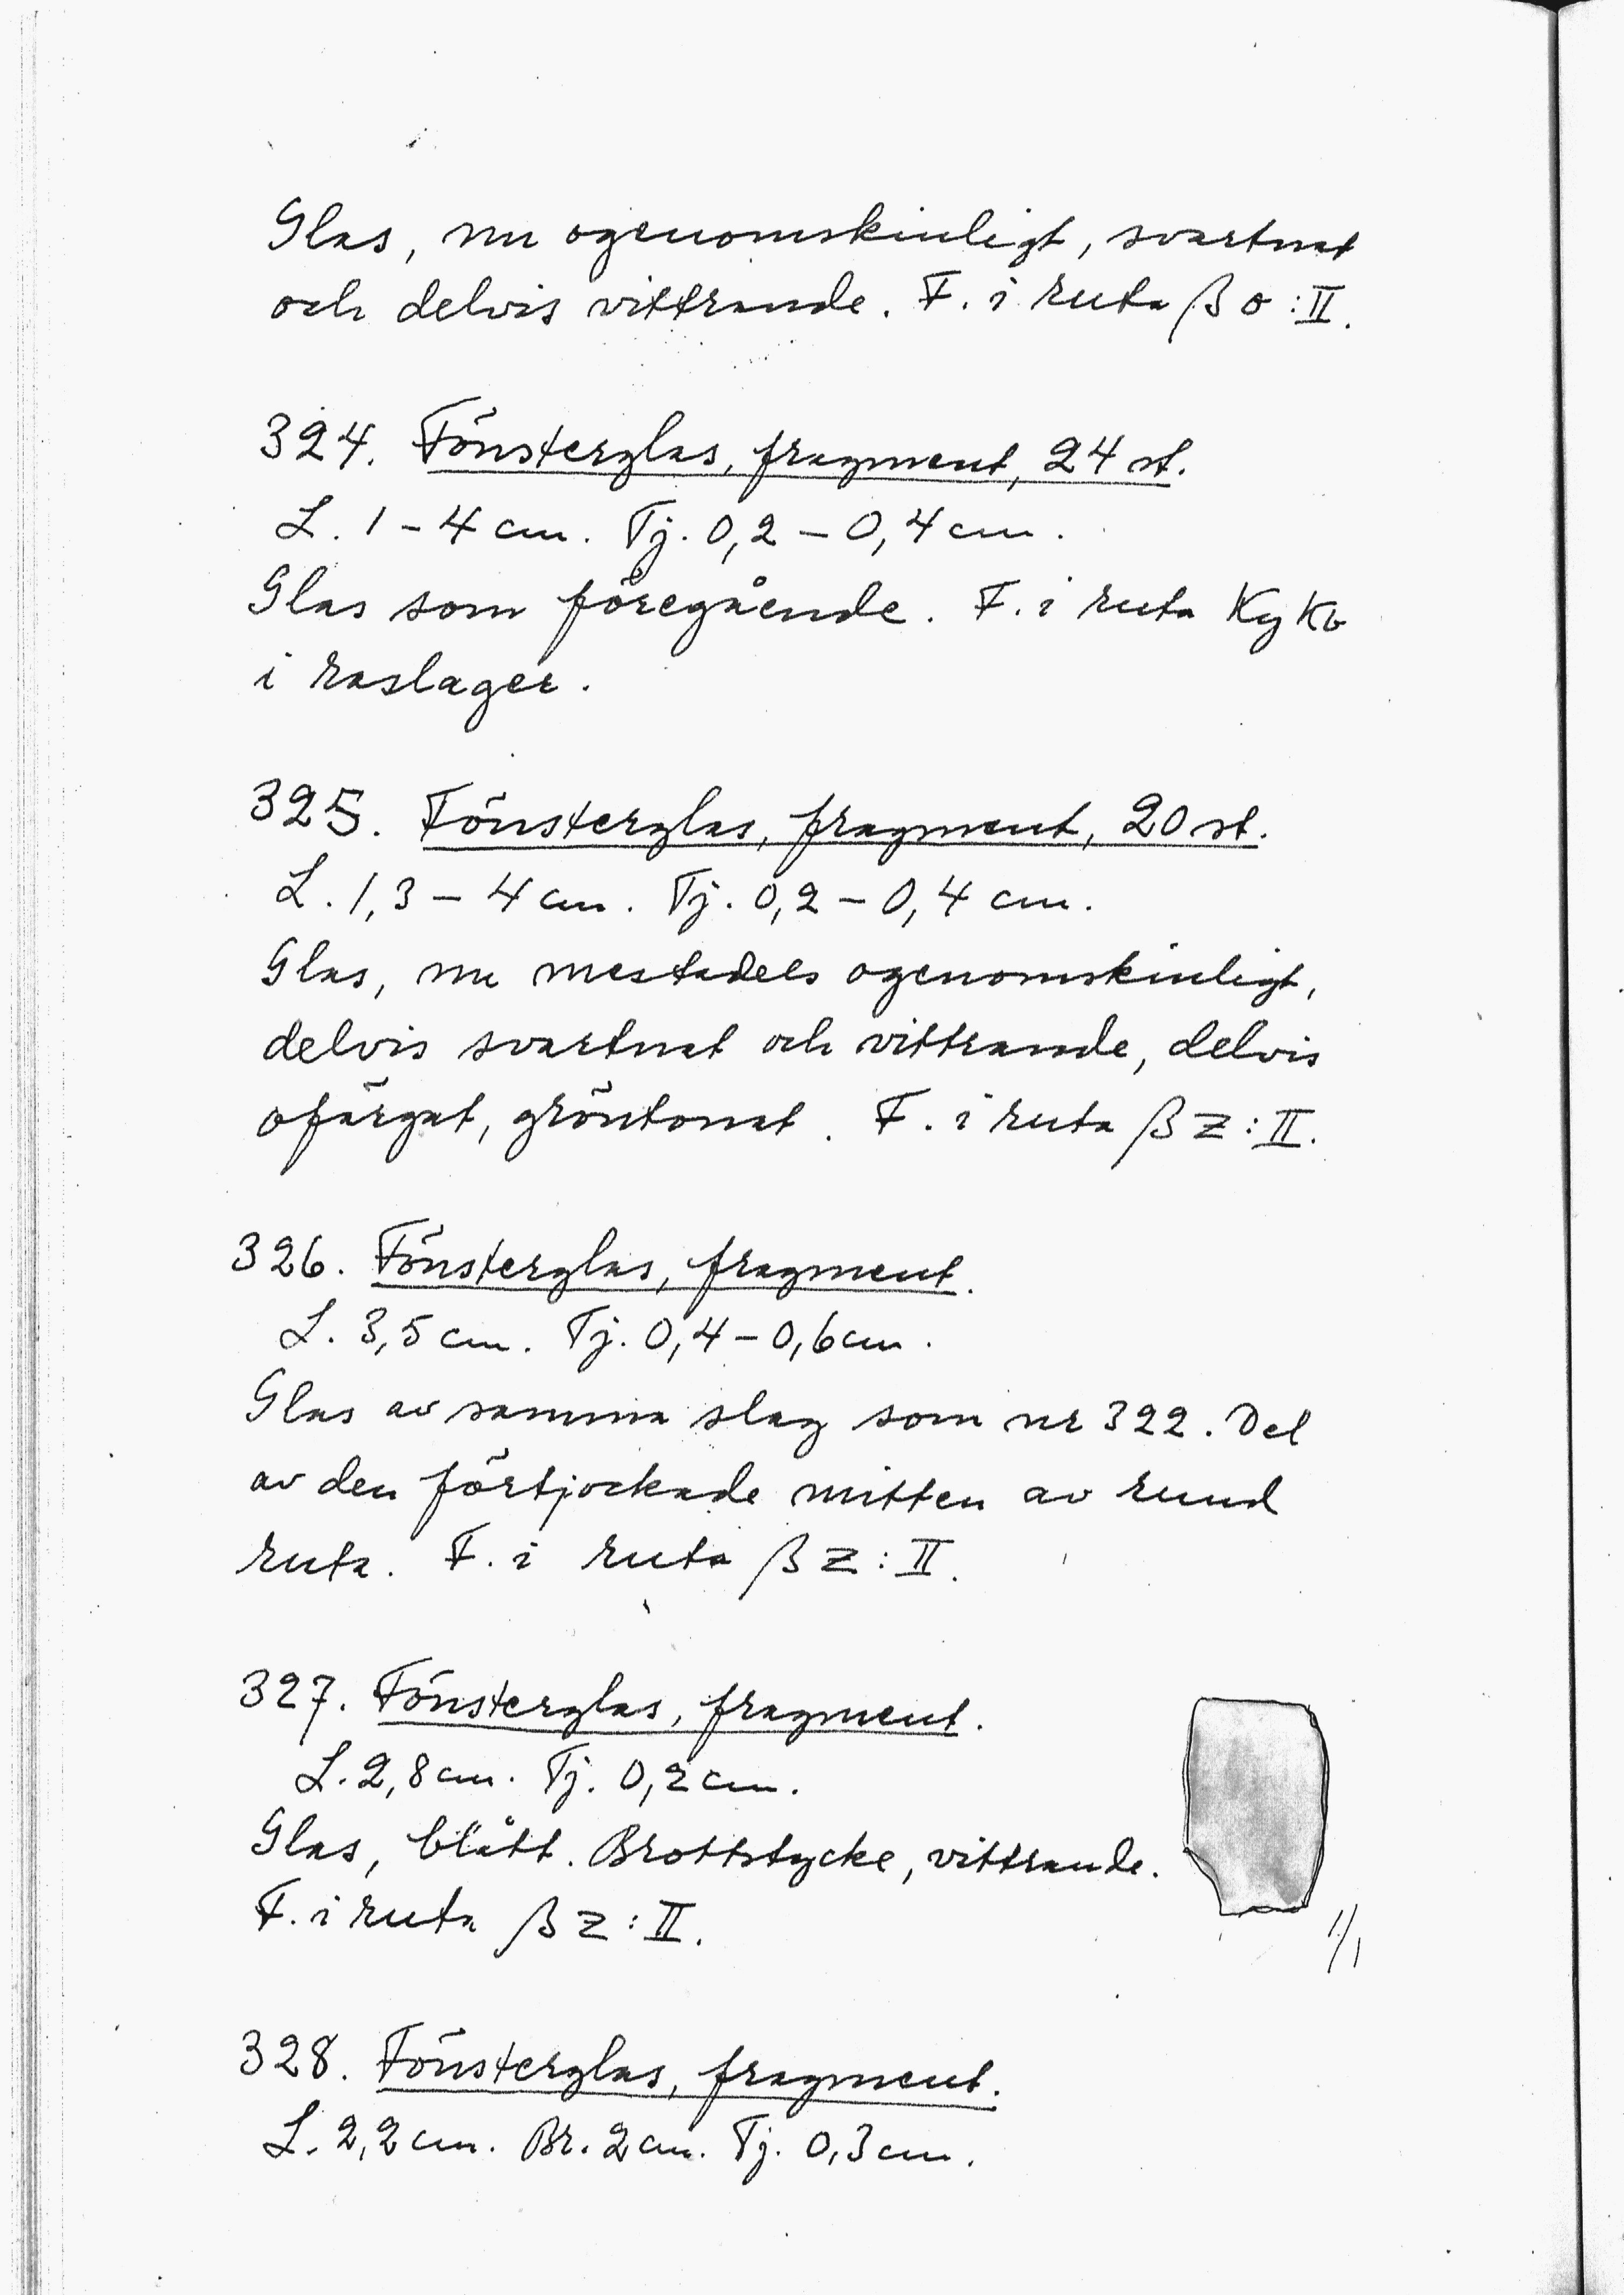 Glas, nu ogenomskinligt, svartnat
och delvis vittrande. F. i ruta β o : II.
324. Fönsterglas, fragment, 24 st.
L. 1 – 4 cm. Tj. 0,2 – 0,4 cm.
Glas som föregående. F. i ruta Ky Kv
i raslager.
325. Fönsterglas, fragment, 20 st.
L. 1,3 – 4 cm. Tj. 0,2 – 0,4 cm.
Glas, nu mestadels ogenomskinligt,
delvis svartnat och vittrande, delvis
ofärgat, gröntonat. F. i ruta β z : II.
326. Fönsterglas, fragment.
L. 3,5 cm. Tj. 0,4 – 0,6 cm.
Glas av samma slag som nr 322. Del
av den förtjockade mitten av rund
ruta. F. i ruta β z : II.
327. Fönsterglas, fragment.
L. 2,8 cm. Tj. 0,2 cm.
Glas, blått. Brottstycke, vittrande.
F. i ruta β z : II.
1/1
328. Fönsterglas, fragment.
L. 2,2 cm. Br. 2 cm. Tj. 0,3 cm.